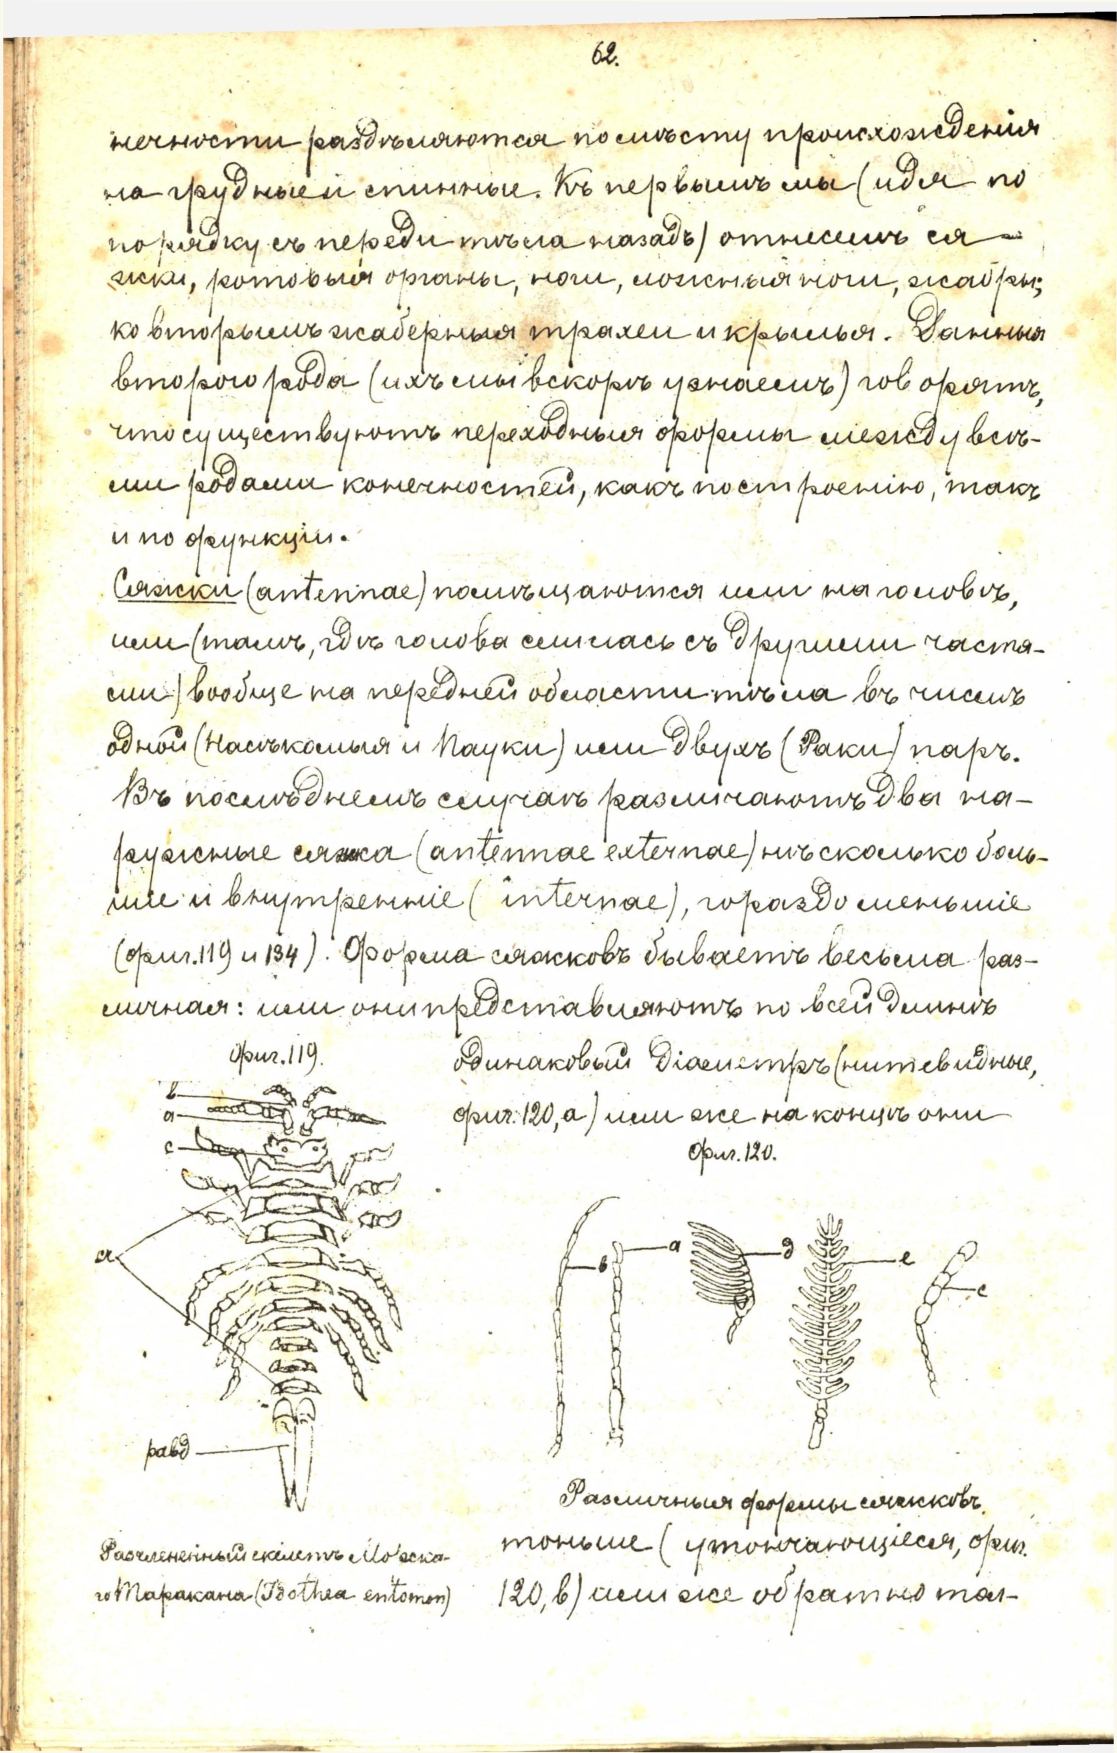 62.
нечности раздѣляются по мѣсту происхожденія
на грудные и спинные. Къ первымъ мы (идя по
порядку съ переди тѣла назадъ) отнесемъ ся-
жки, ротовыя органы, ноги, ложныя ноги, жабры;
ко вторымъ жаберныя трахеи и крылья. Данныя
второго рода (ихъ мы вскорѣ узнаемъ) говорятъ,
что существуютъ переходныя формы между всѣ-
ми родами конечностей, какъ по строенію, такъ
и по функціи.
Сяжки (antennae) помѣщаются или на головѣ,
или (тамъ, гдѣ голова слилась съ другими частя-
ми) вообще на передней области тѣла въ числѣ
одной (Насѣкомыя и Пауки) или двухъ (Раки) паръ.
Въ послѣднемъ случаѣ различаютъ два на-
ружные сяжка (antennae externae) нѣсколько боль-
шіе и внутренніе (internae), гораздо меньшіе
(фиг. 119 и 134). Форма сяжковъ бываетъ весьма раз-
личная: или они представляютъ по всей длинѣ
фиг. 119.
одинаковый діаметръ (нитевидные,
фиг. 120, а) или же на концѣ они
фиг. 120.
в
а
с
d
равд
в
а
д
е
с
Различныя формы сяжковъ.
Расчлененный скелетъ Морска-
го Таракана (Idothea entomon)
тоньше (утончающіеся, фиг.
120, в) или же обратно тол-